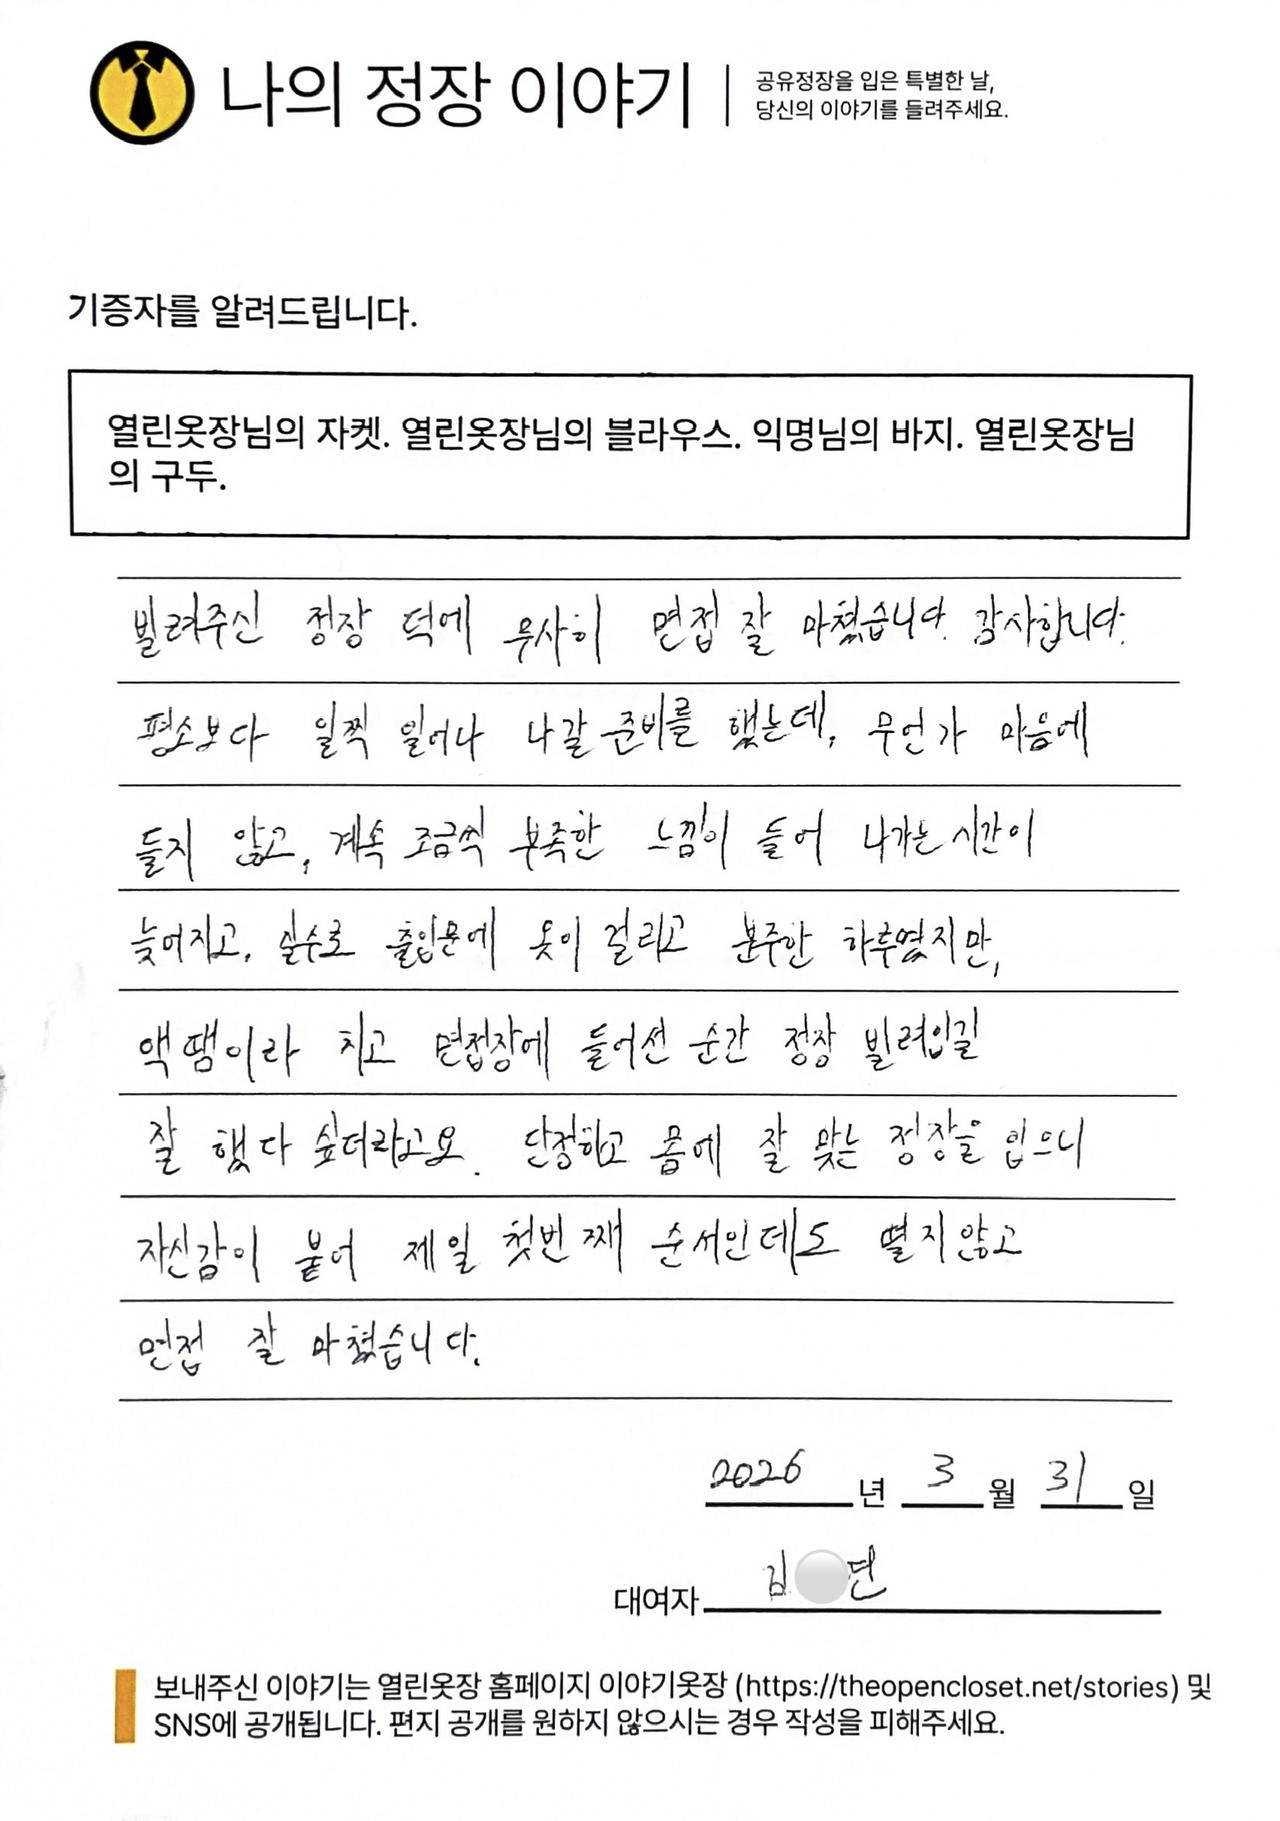 나의 정장 이야기
공유정장을 입은 특별한 날,
당신의 이야기를 들려주세요.
기증자를 알려드립니다.
열린옷장님의 자켓. 열린옷장님의 블라우스. 익명님의 바지. 열린옷장님
의 구두.
빌려주신 정장 덕에 무사히 면접 잘 마쳤습니다. 감사합니다.
평소보다 일찍 일어나 나갈 준비를 했는데, 무언가 마음에
들지 않고, 계속 조금씩 부족한 느낌이 들어 나가는 시간이
늦어지고, 실수로 출입문에 옷이 걸리고 분주한 하루였지만,
액땜이라 치고 면접장에 들어선 순간 정장 빌려입길
잘 했다 싶더라고요. 단정하고 몸에 잘 맞는 정장을 입으니
자신감이 붙어 제일 첫번째 순서인데도 떨지않고
면접 잘 마쳤습니다.
2026 년 3 월 31 일
대여자 김 단
보내주신 이야기는 열린옷장 홈페이지 이야기옷장 (https://theopencloset.net/stories) 및
SNS에 공개됩니다. 편지 공개를 원하지 않으시는 경우 작성을 피해주세요.